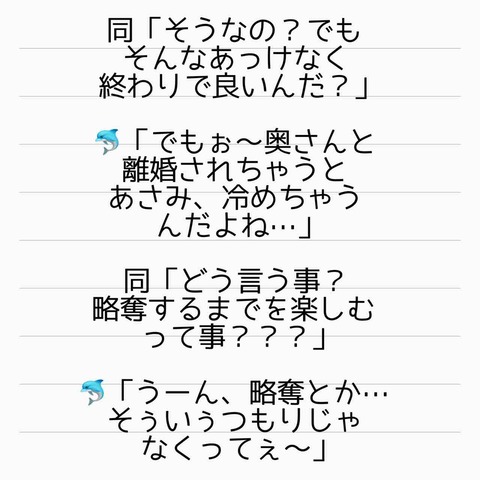 同「そうなの？でも
そんなあっけなく
終わりで良いんだ？」
🐬「でもぉ〜奥さんと
離婚されちゃうと
あさみ、冷めちゃう
んだよね…」
同「どう言う事？
略奪するまでを楽しむ
って事？？？」
🐬「うーん、略奪とか…
そぅいぅつもりじゃ
なくってぇ〜」